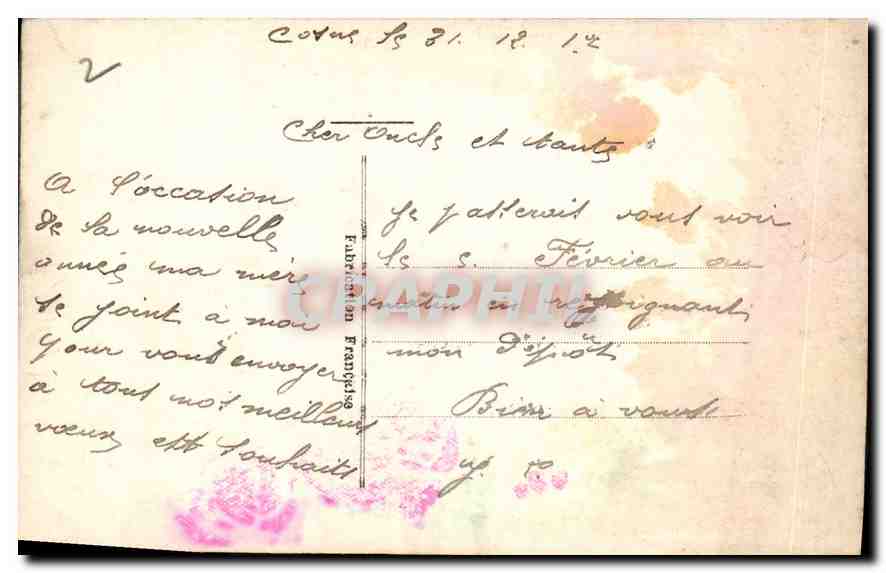 2
Cosne le 31. 12. 1er
Cher Oncle et tante
A l'occation
de la nouvelle
année ma mère
se joint à moi
pour vous envoyer
à tous nos meilleurs
vœux et souhaits
Je passerait vous voir
le 5 Février au
matin en rejoignant
mon dépôt
Bien à vous
Fabrication Française
CRAPHIL